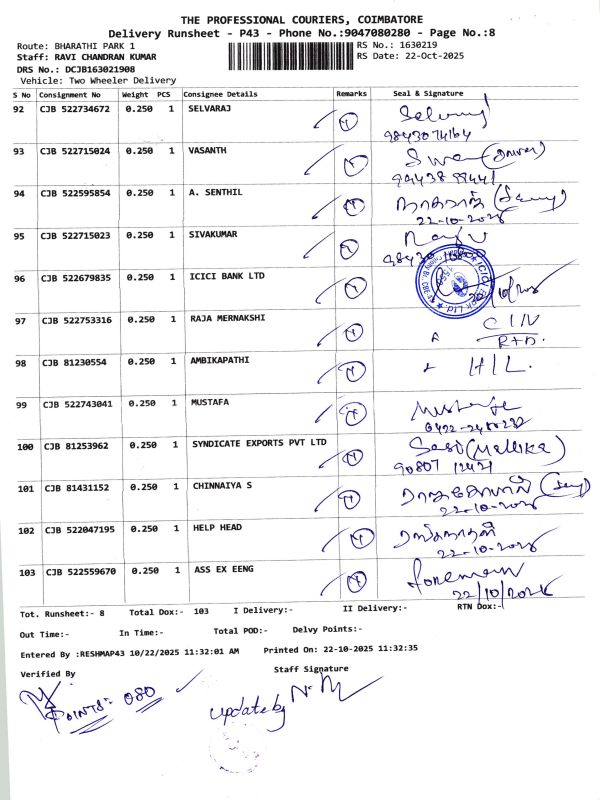 THE PROFESSIONAL COURIERS, COIMBATORE
Delivery Runsheet - P43 - Phone No.:9047080280 - Page No.:8
Route: BHARATHI PARK 1 RS No.: 1630219
Staff: RAVI CHANDRAN KUMAR RS Date: 22-Oct-2025
DRS No.: DCJB163021908
Vehicle: Two Wheeler Delivery
S No Consignment No Weight PCS Consignee Details Remarks Seal & Signature
92 CJB 522734672 0.250 1 SELVARAJ
9843074164
93 CJB 522715024 0.250 1 VASANTH (Driver)
94 CJB 522595854 0.250 1 A. SENTHIL
22-10-2025
95 CJB 522715023 0.250 1 SIVAKUMAR
96 CJB 522679835 0.250 1 ICICI BANK LTD
97 CJB 522753316 0.250 1 RAJA MERNAKSHI C/N
RTD.
98 CJB 81230554 1 0.250 AMBIKAPATHI H/L.
99 CJB 522743041 0.250 1 MUSTAFA
100 CJB 81253962 0.250 1 SYNDICATE EXPORTS PVT LTD (Mallika)
90807 12421
101 CJB 81431152 0.250 1 CHINNAIYA S
22-10-2025
102 CJB 522047195 0.250 1 HELP HEAD
22-10-2025
103 CJB 522559670 0.250 1 ASS EX EENG foreman
22/10/2025
Tot. Runsheet:- 8 Total Dox:- 103 I Delivery:- II Delivery:- RTN Dox:-
Out Time:- In Time:- Total POD:- Delvy Points:-
Entered By :RESHMAP43 10/22/2025 11:32:01 AM Printed On: 22-10-2025 11:32:35
Verified By Staff Signature
POINTS: 080 update by